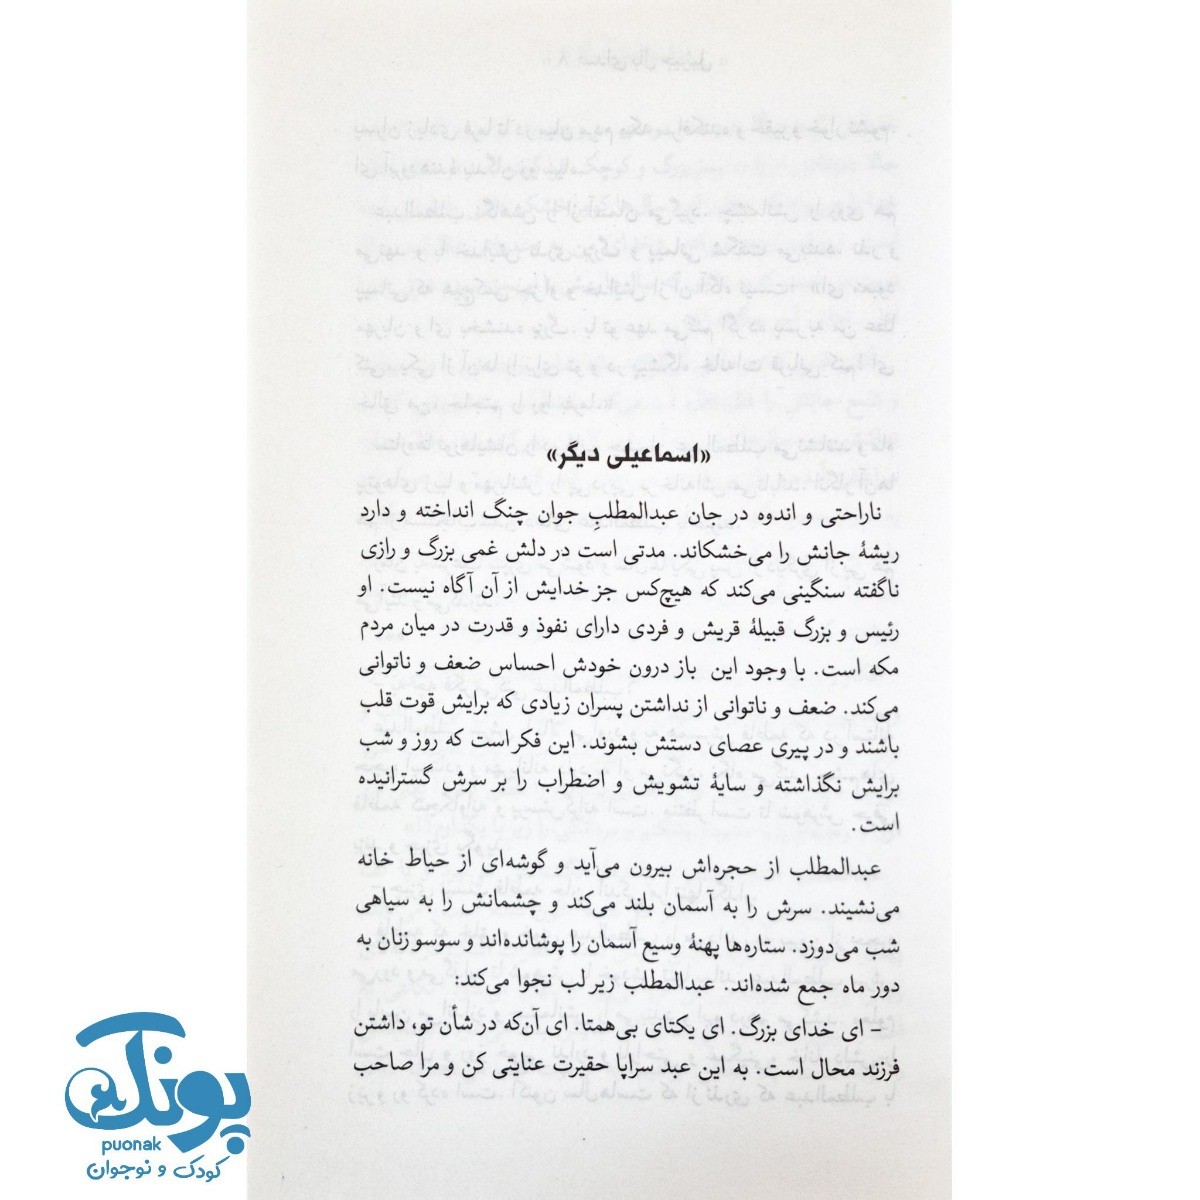 «اسماعیلی دیگر»
ناراحتی و اندوه در جان عبدالمطلبِ جوان چنگ انداخته و دارد
ریشۀ جانش را می‌خشکاند. مدتی است در دلش غمی بزرگ و رازی
ناگفته سنگینی می‌کند که هیچ‌کس جز خدایش از آن آگاه نیست. او
رئیس و بزرگ قبیلۀ قریش و فردی دارای نفوذ و قدرت در میان مردم
مکه است. با وجود این باز درون خودش احساس ضعف و ناتوانی
می‌کند. ضعف و ناتوانی از نداشتن پسران زیادی که برایش قوت قلب
باشند و در پیری عصای دستش بشوند. این فکر است که روز و شب
برایش نگذاشته و سایۀ تشویش و اضطراب را بر سرش گسترانیده
است.
عبدالمطلب از حجره‌اش بیرون می‌آید و گوشه‌ای از حیاط خانه
می‌نشیند. سرش را به آسمان بلند می‌کند و چشمانش را به سیاهی
شب می‌دوزد. ستاره‌ها پهنۀ وسیع آسمان را پوشانده‌اند و سوسو زنان به
دور ماه جمع شده‌اند. عبدالمطلب زیر لب نجوا می‌کند:
– ای خدای بزرگ. ای یکتای بی‌همتا. ای آن‌که در شأن تو، داشتن
فرزند محال است. به این عبد سراپا حقیرت عنایتی کن و مرا صاحب
پونک
puonak
کودک و نوجوان